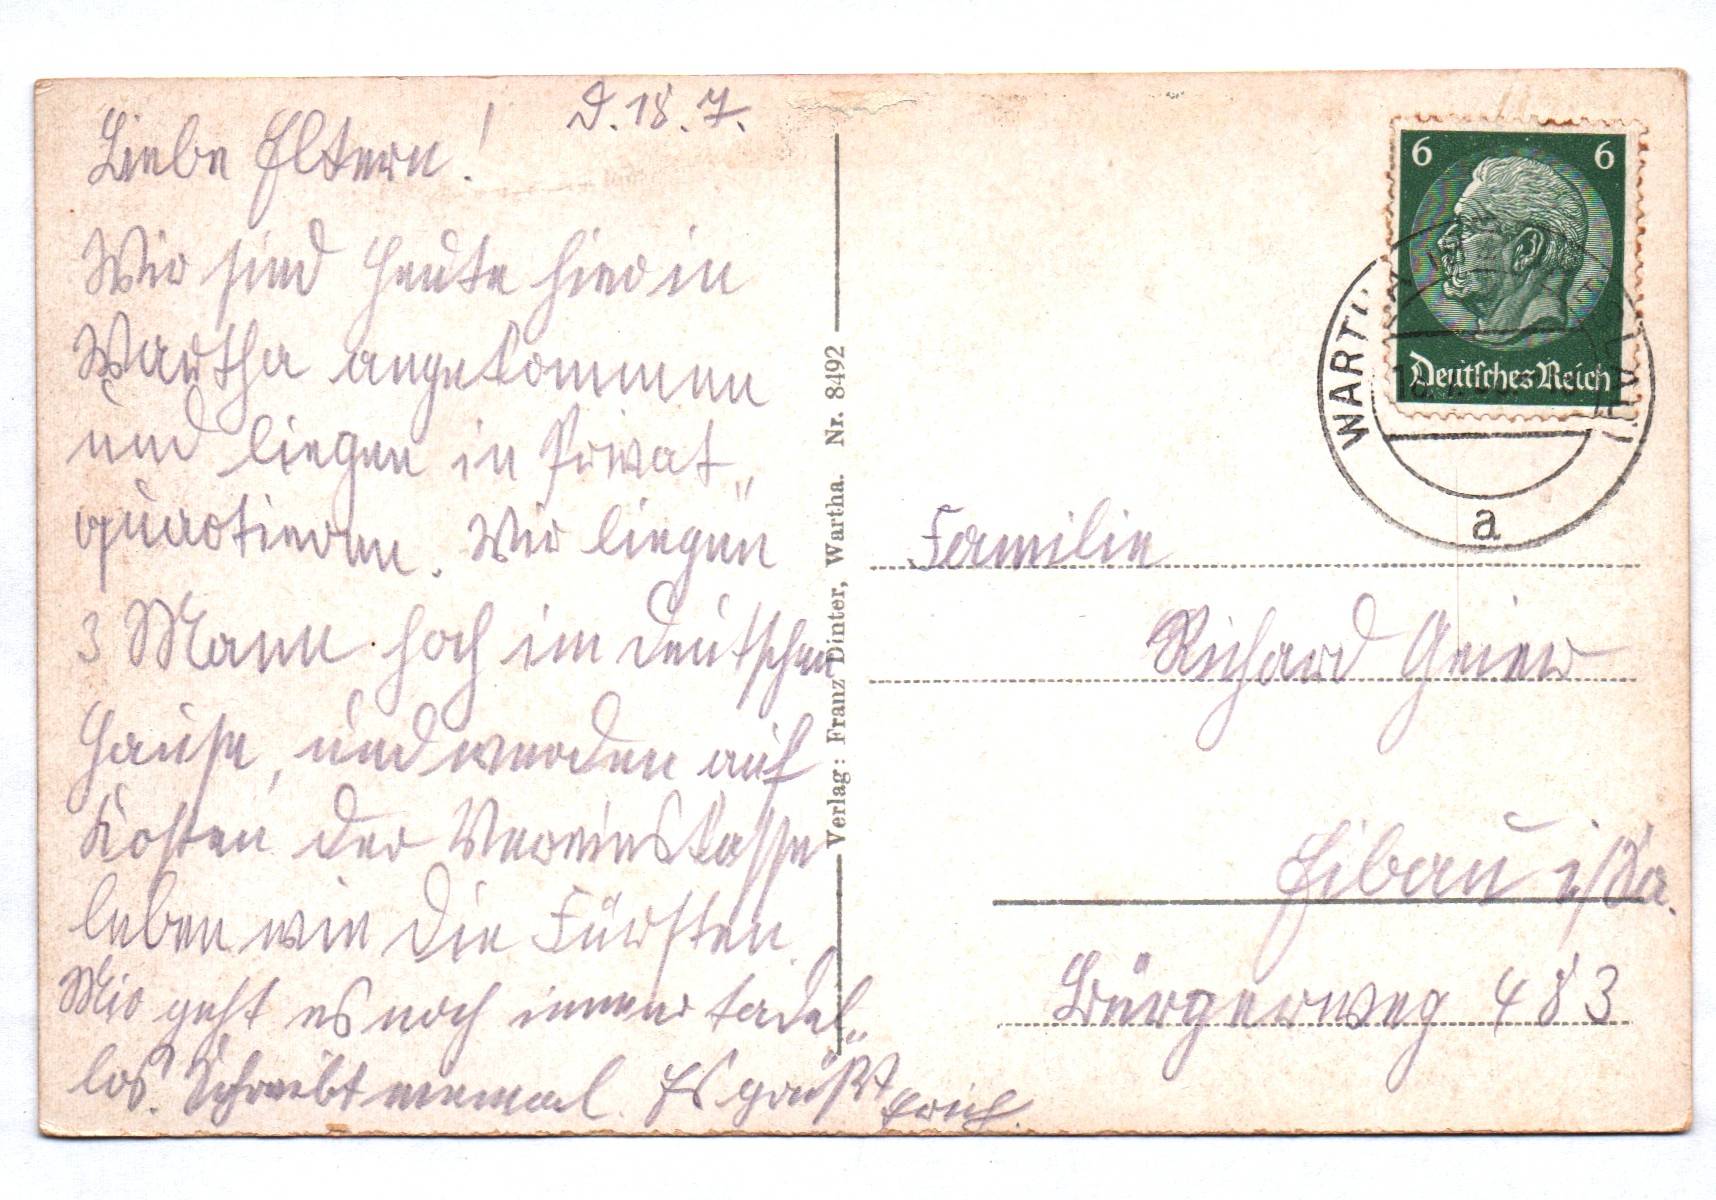 D. 18. 7.
Liebe Eltern!
Wir sind heute hier in
Wartha angekommen
und liegen in Privat„
quartieren. Wir liegen
3 Mann hoch im deutschen
Hause, und werden auf
Kosten der Vereinskasse
leben wie die Fürsten.
Mir geht es noch immer tadel„
los. Schreibt mal. Es grüßt Erich.
Verlag: Franz Dinter, Wartha. Nr. 8492
6 6
Deutsches Reich
WARTHA
a
Familie
Richard Geier
Eibau i/Sa.
Bürgerweg 483